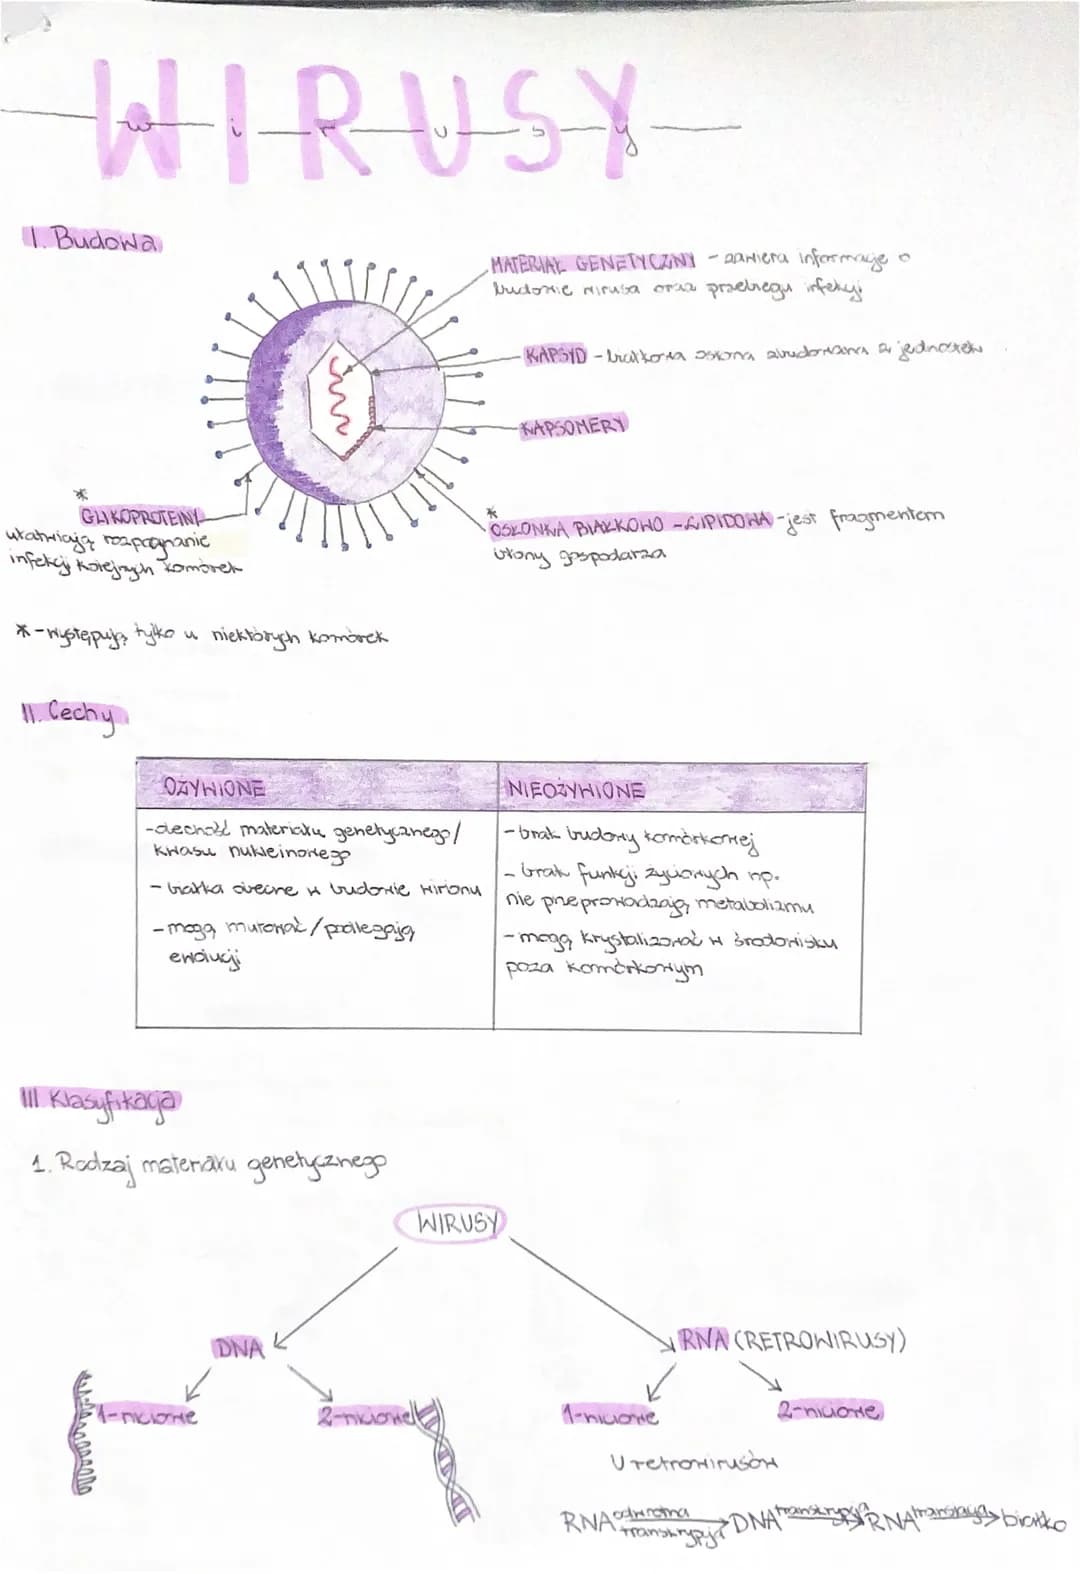 WIRUSY
wirusy
I. Budowa
MATERIAŁ GENETYCZNY - zawiera informacje o
budowie wirusa oraz przebiegu infekcji
KAPSYD - białkowa osłona zbudowana z jednostek
KAPSOMERY
*
GLIKOPROTEINY
ułatwiają rozpoznanie
infekcji kolejnych komórek
*
OSŁONKA BIAŁKOWO-LIPIDOWA - jest fragmentem
błony gospodarza
* - występują tylko u niektórych komórek
II. Cechy
OŻYWIONE
- obecność materiału genetycznego/
kwasu nukleinowego
- białka obecne w budowie wirionu
- mogą mutować/podlegają
ewolucji
NIEOŻYWIONE
- brak budowy komórkowej
- brak funkcji życiowych np.
nie przeprowadzają metabolizmu
- mogą krystalizować w środowisku
poza komórkowym
III Klasyfikacja
1. Rodzaj materiału genetycznego
WIRUSY
DNA
RNA (RETROWIRUSY)
1-niciowe
2-niciowe
1-niciowe
2-niciowe
U retrowirusów
RNA odwrotna transkrypcja DNA transkrypcja RNA translacja białko